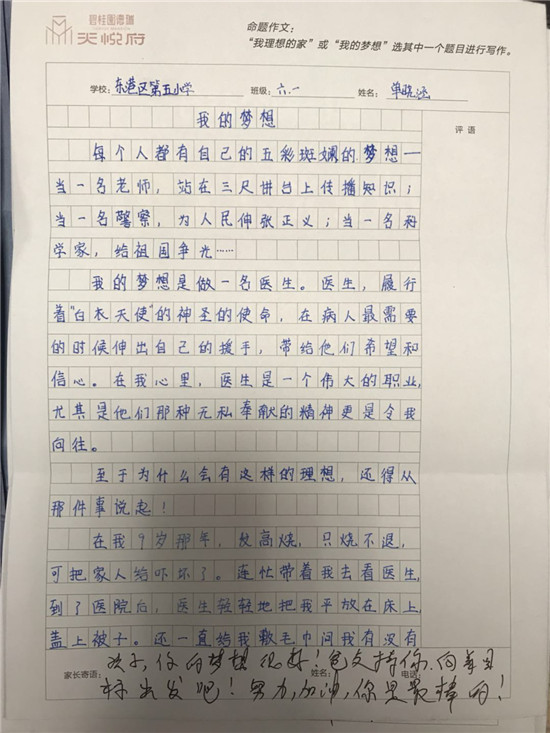 碧桂園德瑞
天悦府
命题作文：
“我理想的家”或“我的梦想”选其中一个题目进行写作。
学校：东港区第五小学 班级：六.一 姓名：单晓涵
我的梦想
评语
每个人都有自己的五彩斑斓的梦想一
当一名老师，站在三尺讲台上传播知识；
当一名警察，为人民伸张正义；当一名科
学家，给祖国争光……
我的梦想是做一名医生。医生，履行
着“白衣天使”的神圣的使命，在病人最需要
的时候伸出自己的援手，带给他们希望和
信心。在我心里，医生是一个伟大的职业，
尤其是他们那种无私奉献的精神更是令我
向往。
至于为什么会有这样的理想，还得从
那件事说起！
在我9岁那年，发高烧，只烧不退，
可把家人给吓坏了。连忙带着我去看医生，
到了医院后，医生轻轻地把我平放在床上，
盖上被子。还一直给我敷毛巾问我有没有
孩子，你的梦想很好！支持你，向着目
家长寄语： 姓名： 电话：
标出发吧！努力，加油，你是最棒的！